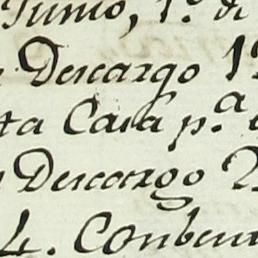 Junio, 1.º di
Descargo 1
ta Casa p.ª
Descargo 2
4. Conben